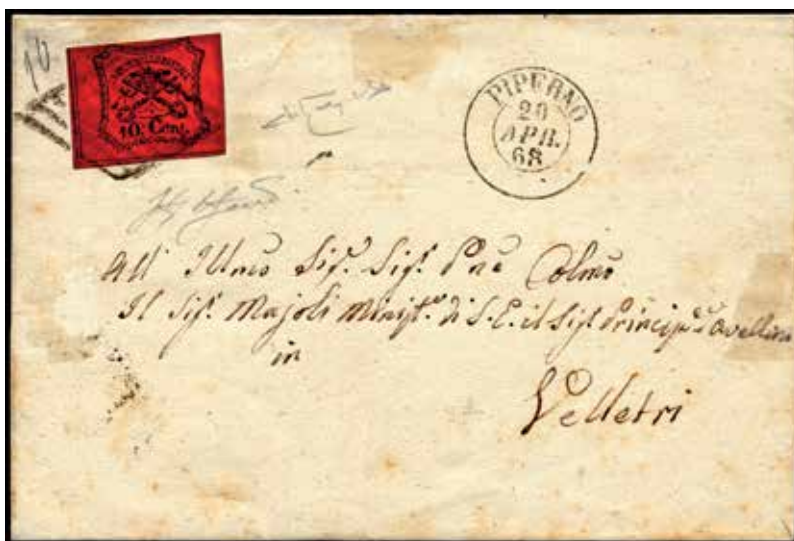 10
10. Cent.
PIPERNO
20
APR.
68
All' Illmo Sig.r Sig.r Pne Colmo
Il Sig.r Majoli Minist.o di S. E. il Sig.r Principe d'Avellino
in
Velletri